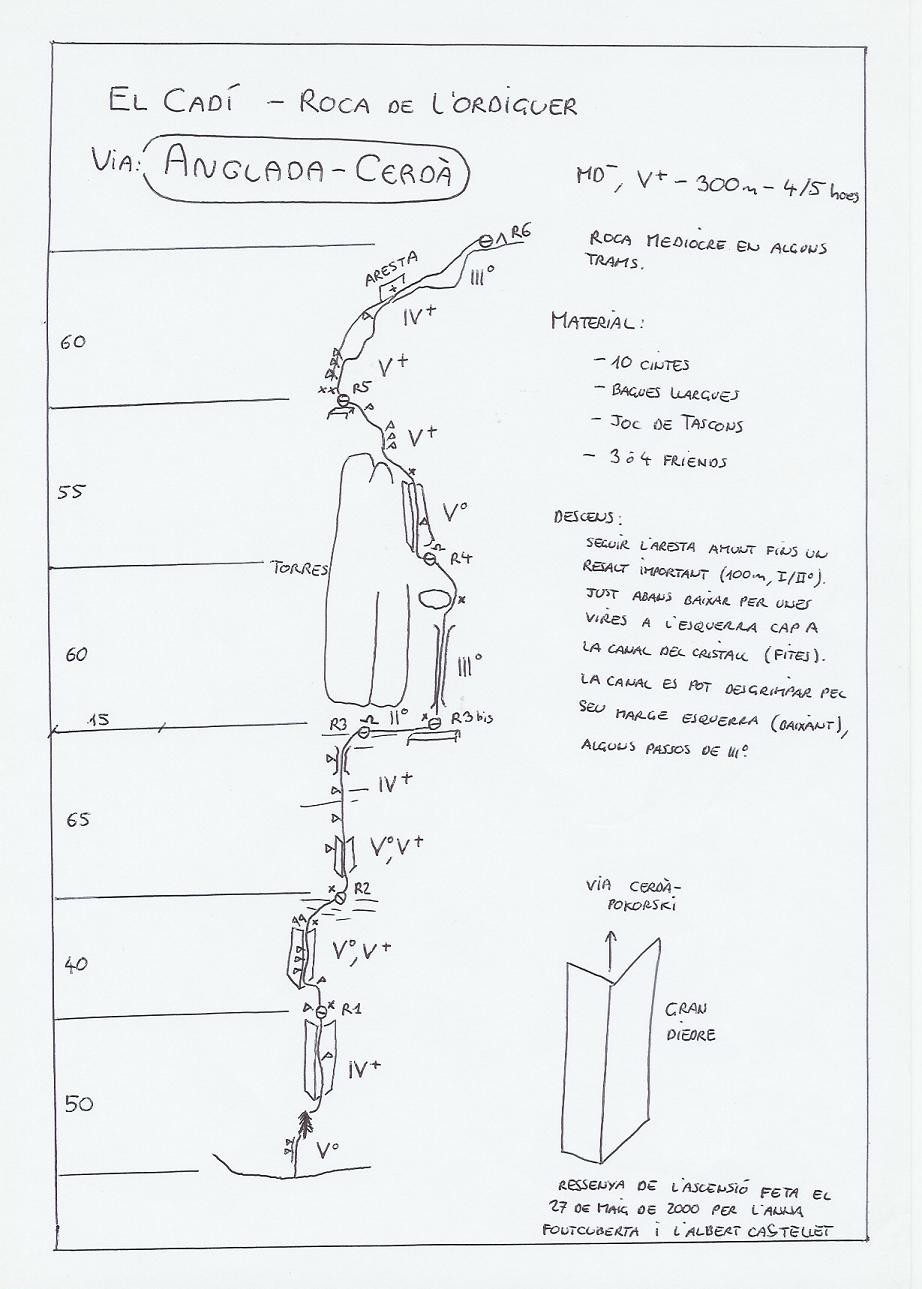 EL CADÍ - ROCA DE L'ORDIGUER
VIA: ANGLADA-CERDÀ
MD⁻, V⁺ - 300m - 4/5 hores
ROCA MEDIOCRE EN ALGUNS
TRAMS.
R6
ARESTA
III°
IV⁺
60
V⁺
R5
V⁺
55
V°
R4
TORRES
60
III°
15
R3
II°
R3 bis
IV⁺
65
V°, V⁺
R2
V°, V⁺
40
R1
IV⁺
50
V°
MATERIAL:
- 10 CINTES
- BAGUES LLARGUES
- JOC DE TASCONS
- 3 ó 4 FRIENDS
DESCENS:
SEGUIR L'ARESTA AMUNT FINS UN
RESALT IMPORTANT (100m, I/II°).
JUST ABANS BAIXAR PER UNES
VIRES A L'ESQUERRA CAP A
LA CANAL DEL CRISTALL (FITES).
LA CANAL ES POT DESGRIMPAR PEL
SEU MARGE ESQUERRA (BAIXANT),
ALGUNS PASSOS DE III°.
VIA CERDÀ-
POKORSKI
GRAN
DIEDRE
RESSENYA DE L'ASCENSIÓ FETA EL
27 DE MAIG DE 2000 PER L'ANNA
FOUTCUBERTA I L'ALBERT CASTELLET